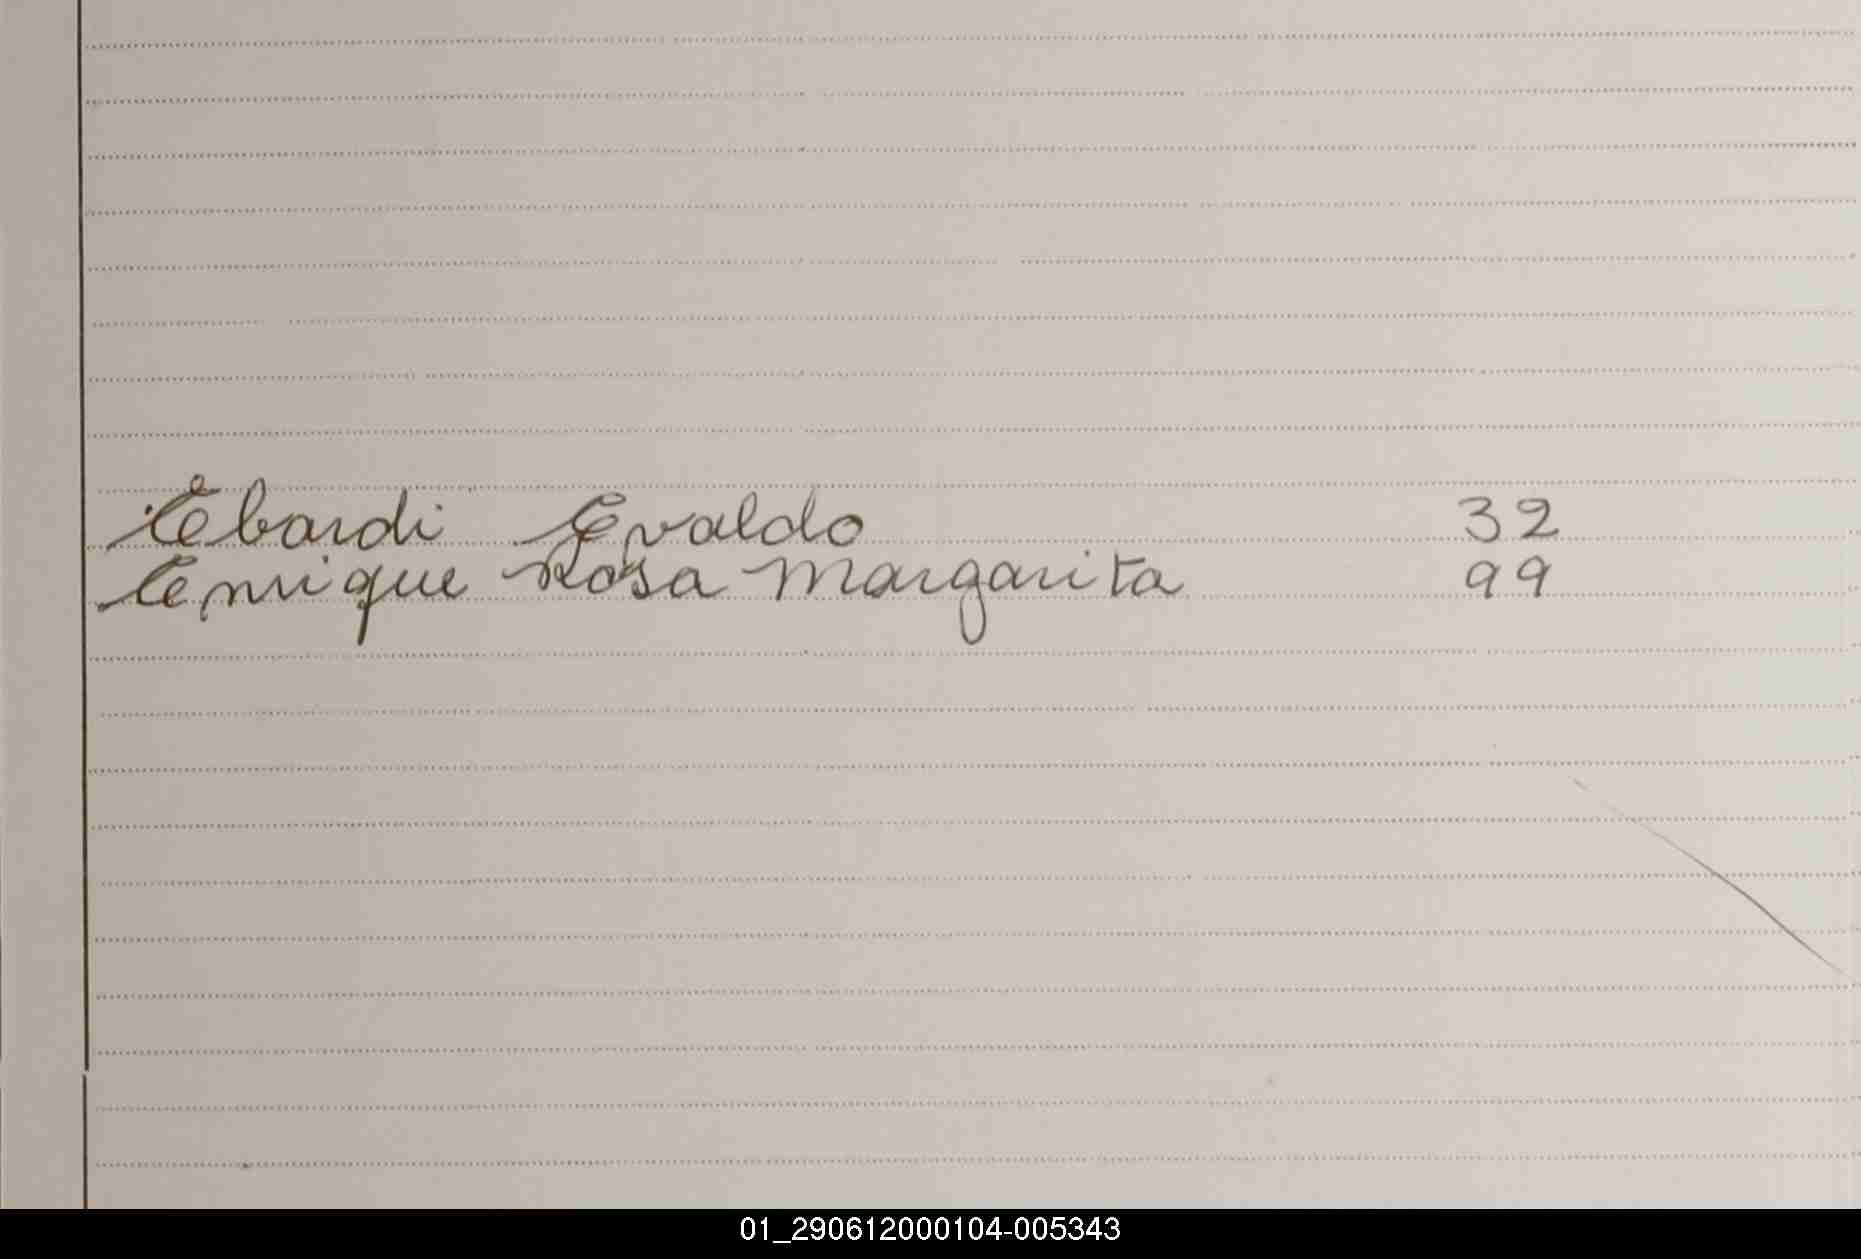 Ebardi Evaldo 32
Enrique Rosa Margarita 99
01_290612000104-005343